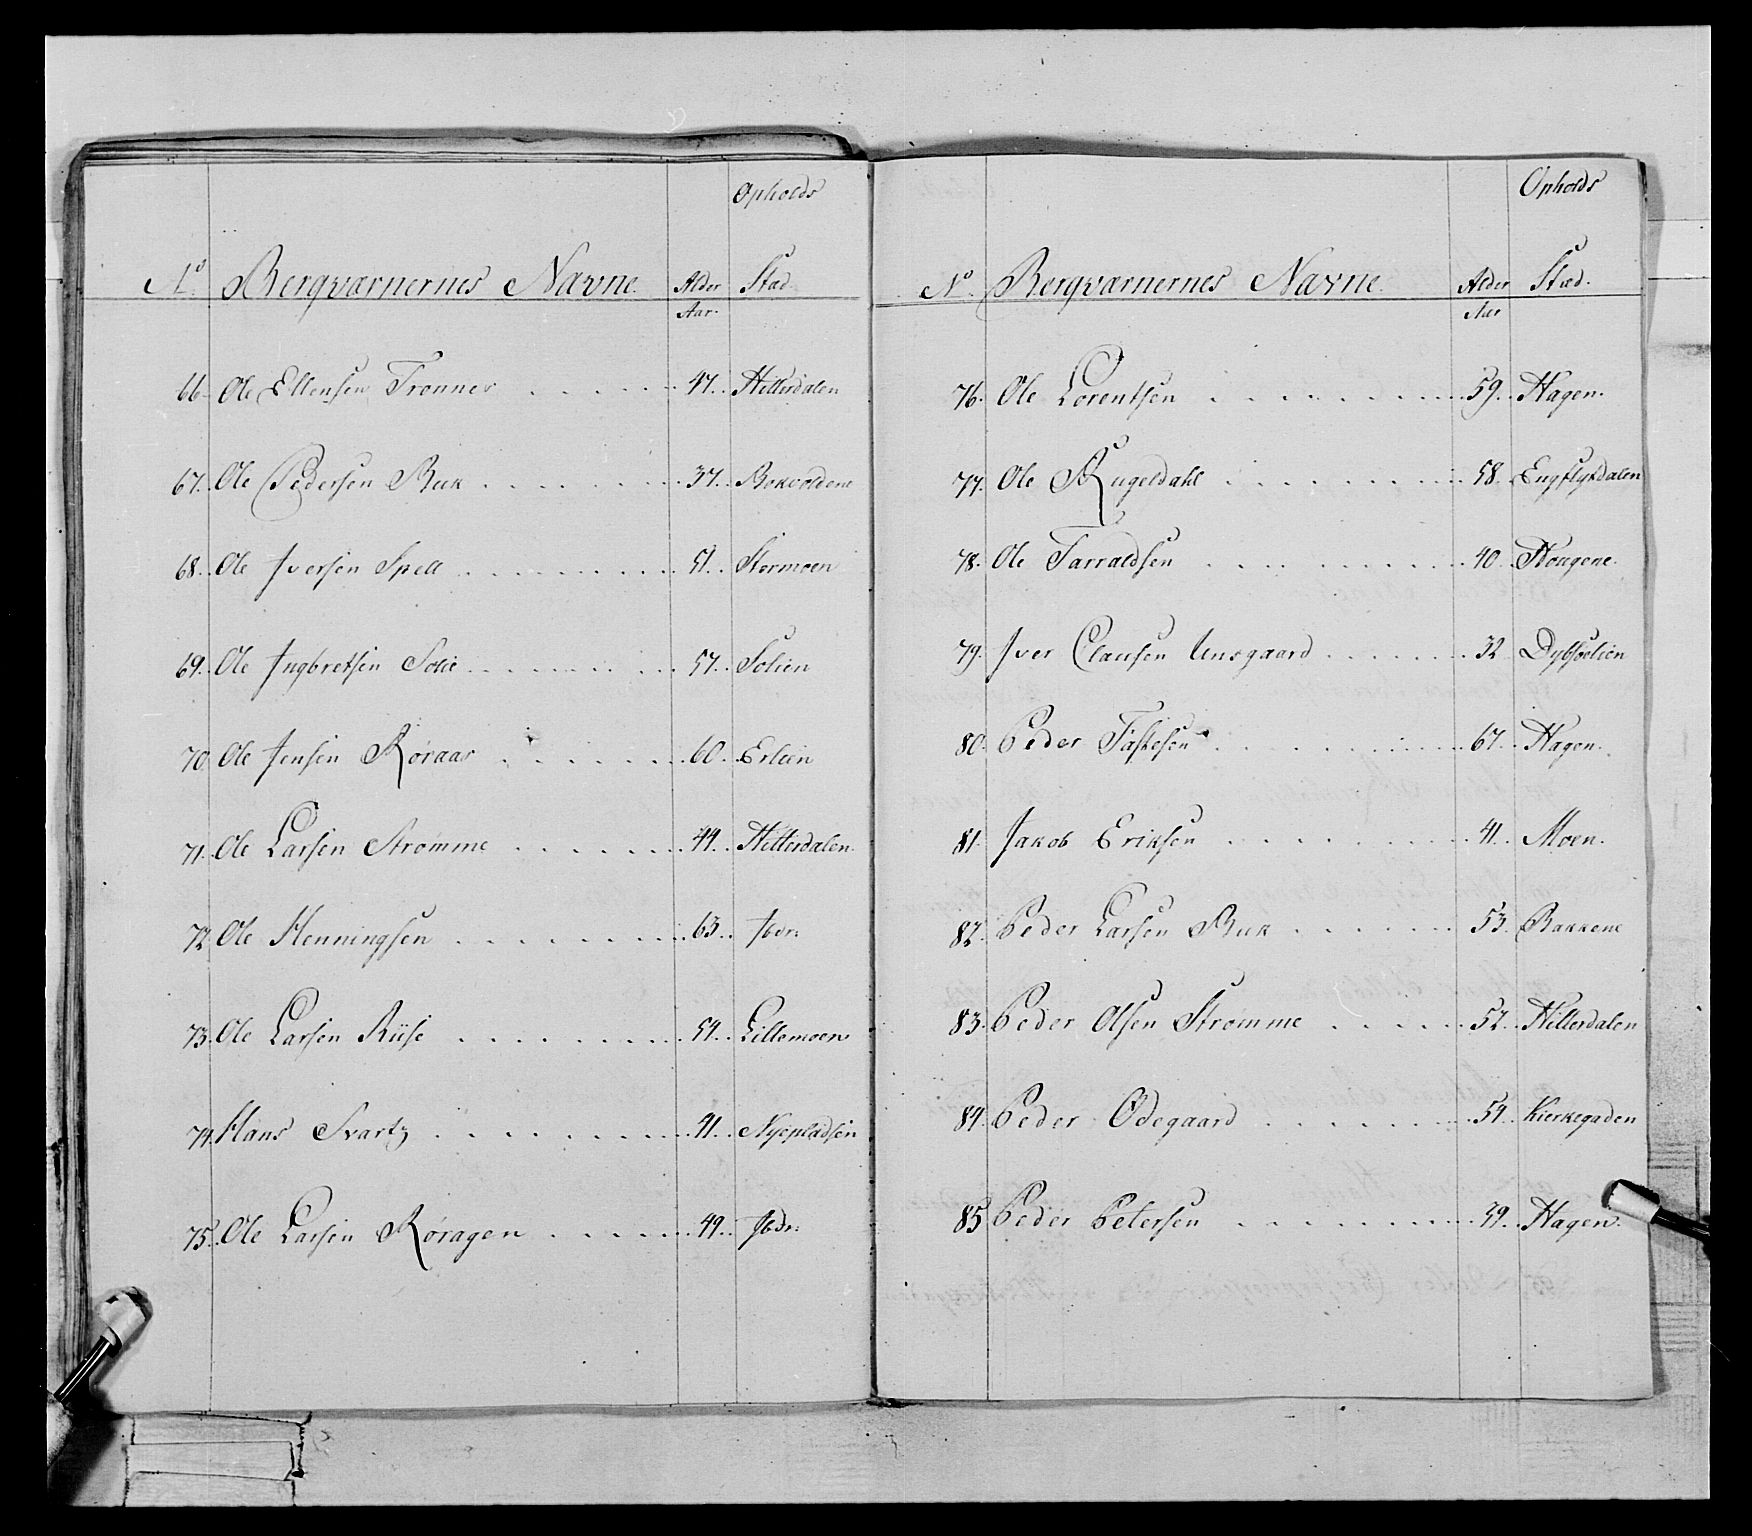 Opholds
No. Bergværnernes Navne. Alder Stæd.
Aar.
66. Ole Ellensen Trønnes . . . . . 47. Hitterdalen
67. Ole Pedersen Ruk . . . . . 37. Bekvoldene
68. Ole Iversen Spell . . . . . 51. Stormoen
69. Ole Ingbretsen Solie . . . . . 57. Solien
70. Ole Jensen Røraas . . . . . 60. Erlien
71. Ole Larsen Strømme . . . . . 44. Hitterdalen
72. Ole Henningsen . . . . . 63. Ibdn:
73. Ole Larsen Riise . . . . . 54. Lillemoen
74. Hans Svartz . . . . . 41. Nyepladsen
75. Ole Larsen Røragen . . . . . 49. Ibdn:
Opholds
No. Bergværnernes Navne. Alder Stæd.
Aar
76. Ole Lorentsen . . . . . 59. Hagen.
77. Ole Rugeldahl . . . . . 58. Engflykdalen
78. Ole Tarraldsen . . . . . 40. Hougene.
79. Iver Clausen Unsgaard . . . . . 32 Dybsøelien
80. Peder Taskesen . . . . . 67. Hagen.
81. Jakob Eriksen . . . . . 41. Moen.
82. Peder Larsen Ruk . . . . . 53. Bakkene
83. Peder Olsen Strømme . . . . . 52. Hitterdalen
84. Peder Ødegaard . . . . . 54. Kierkegaden
85 Peder Petersen . . . . . 39. Hagen.